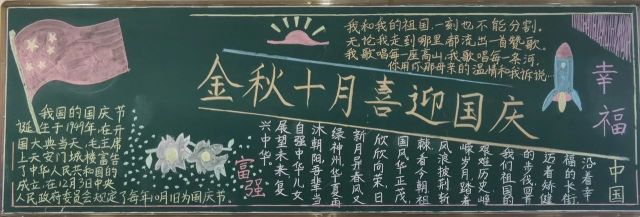 我和我的祖国,一刻也不能分割。
无论我走到哪里,都流出一首赞歌。
我歌唱每一座高山,我歌唱每一条河。
你用你那母亲的温情和我诉说……
金秋十月喜迎国庆
我国的国庆节
诞生于1949年,在开
国大典当天,毛主席
上天安门城楼宣告
了中华人民共和国的
成立,在12月3日中央
人民政府委员会规定了每年10月1日为国庆节。
富强
幸福
中国
沿着幸
福的长街
迈着矫健
的步伐回首
我们祖国的
艰难历史峥
嵘岁月踏着
风浪披荆斩
棘看今朝祖
国风华正茂
欣欣向荣日
新月异春风又
绿神州华夏再
沐朝阳吾辈当
自强中华儿女
展望未来复
兴中华